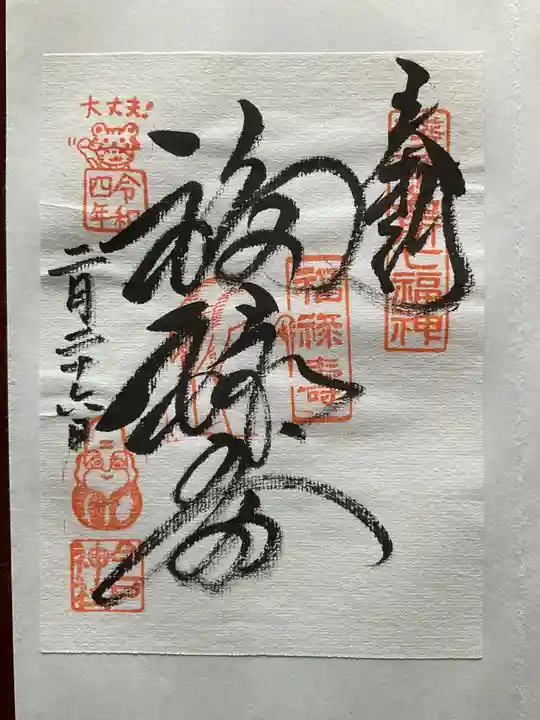 奉拝
七福神
福禄寿
福禄寿
大丈夫!
令和
四年
二月二十六日
神社